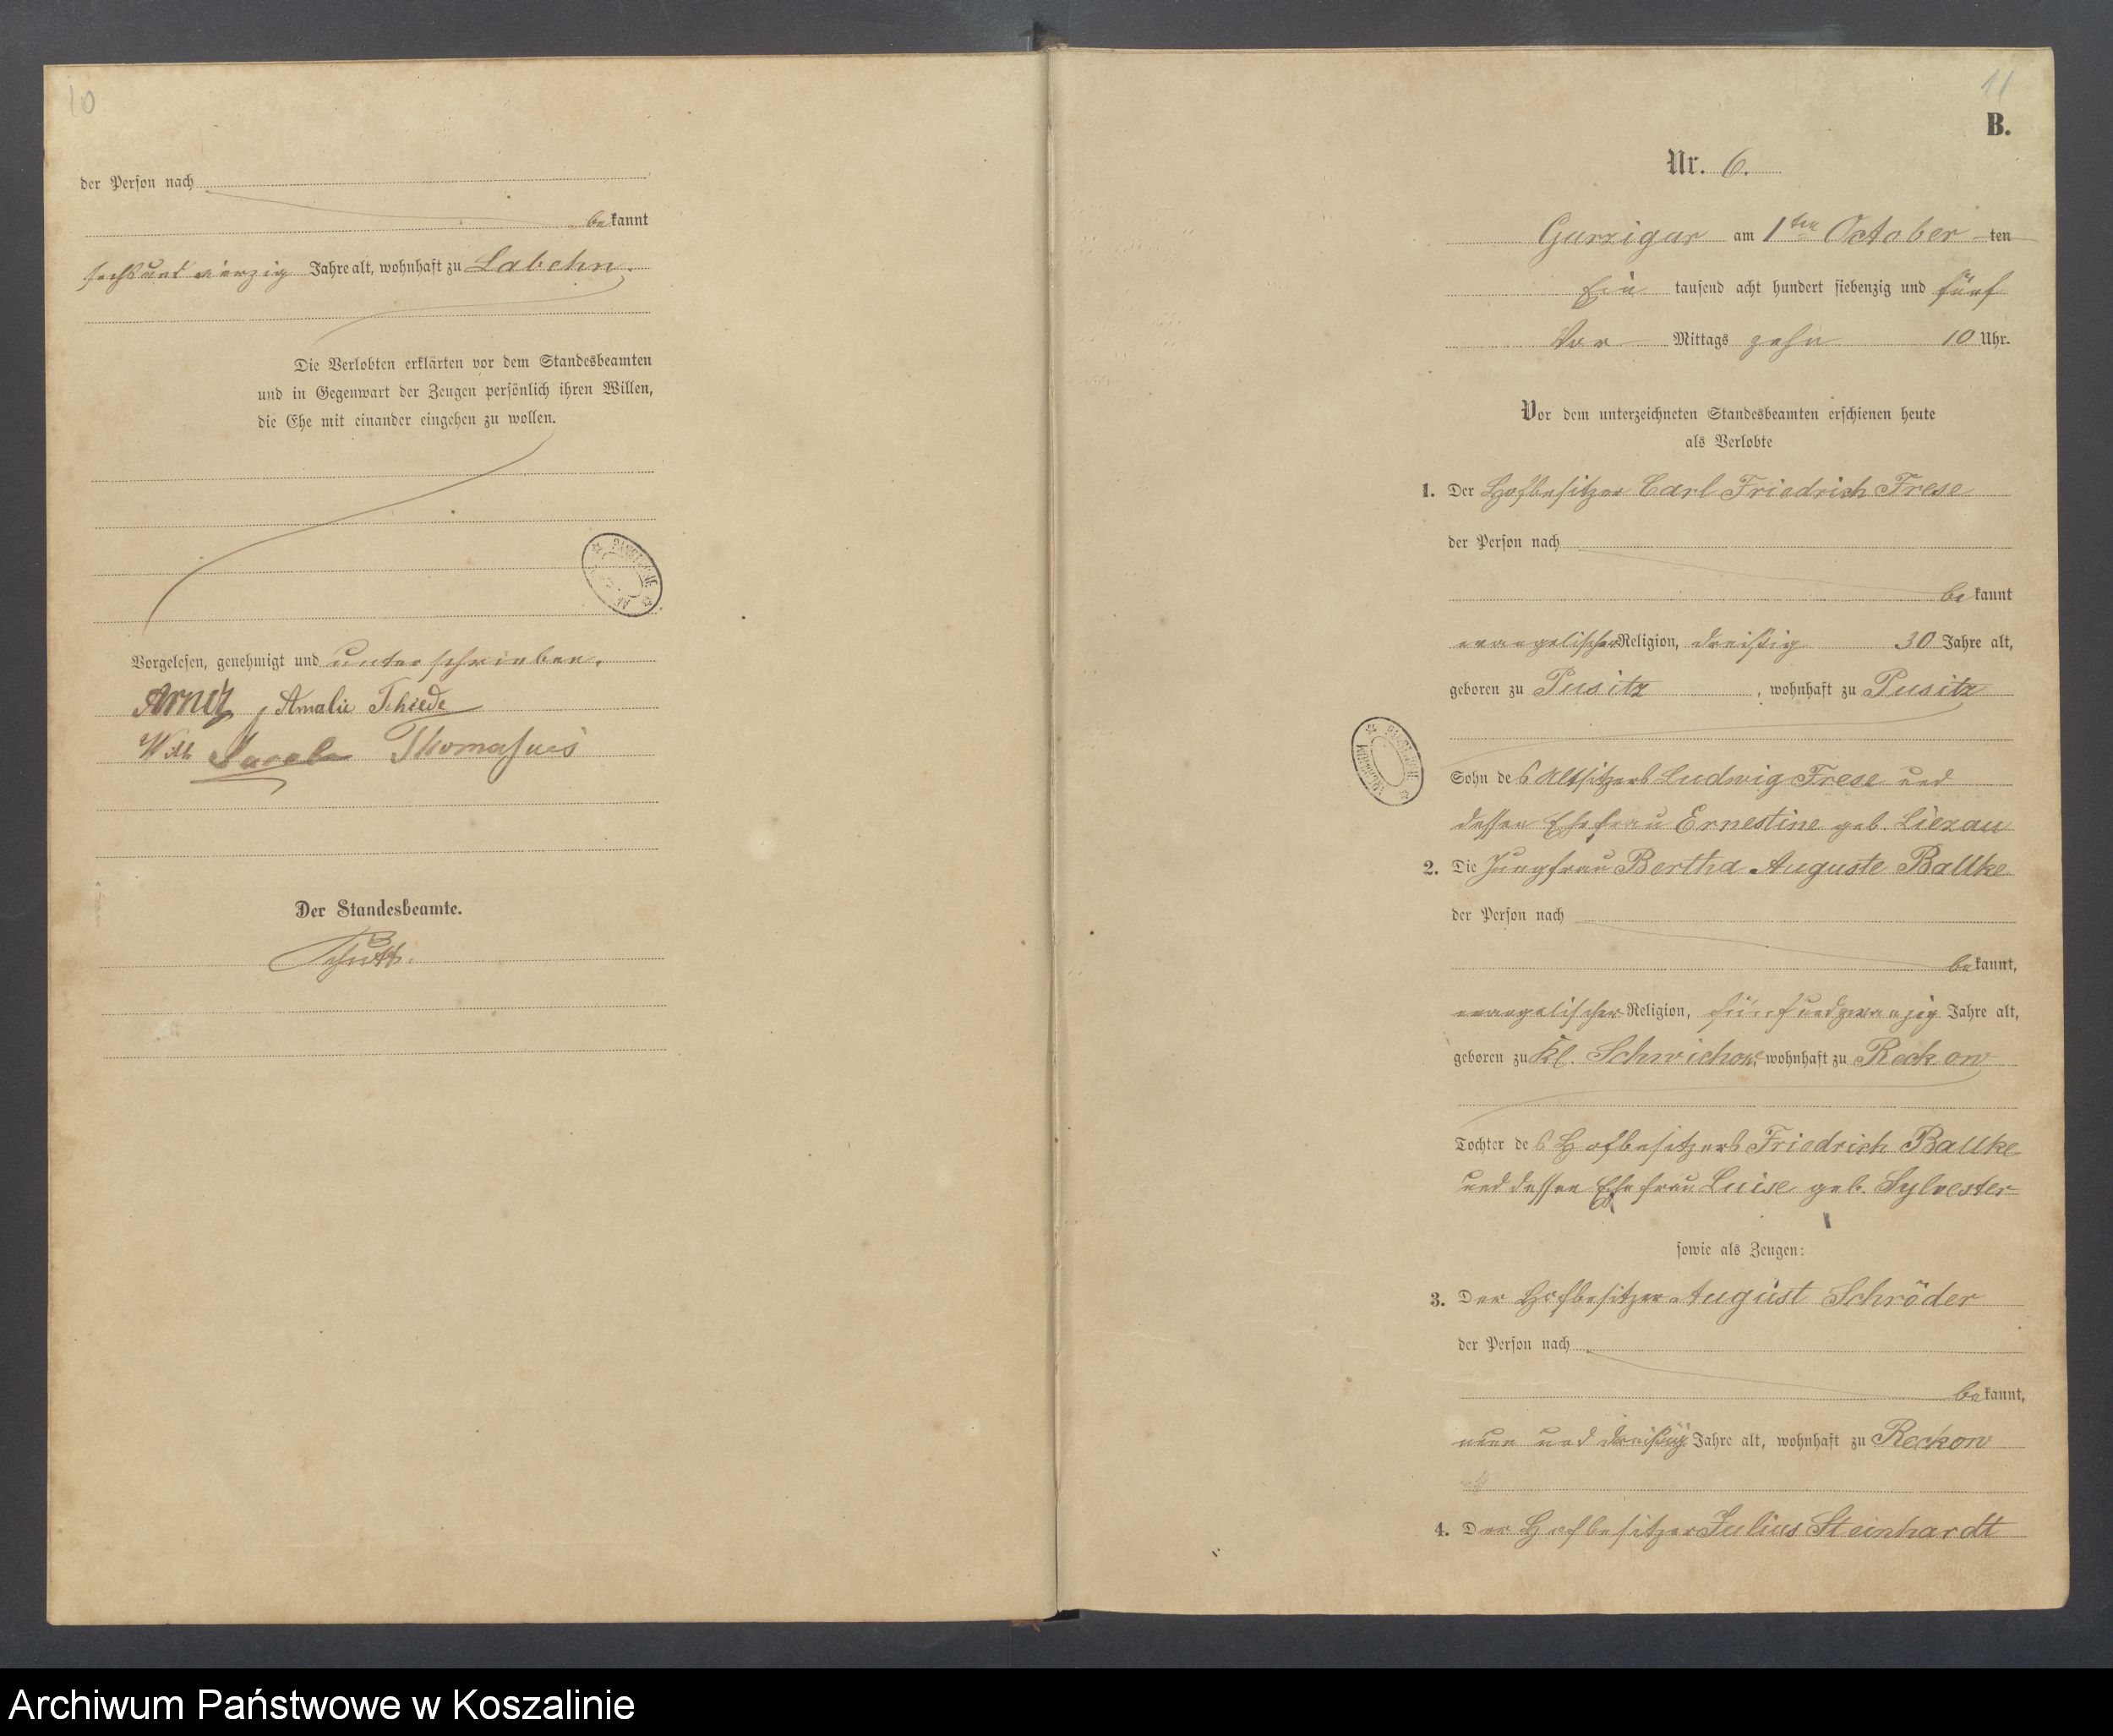 10
der Person nach
bekannt
sechs und vierzig Jahre alt, wohnhaft zu Labehn.
Die Verlobten erklärten vor dem Standesbeamten
und in Gegenwart der Zeugen persönlich ihren Willen,
die Ehe mit einander eingehen zu wollen.
Vorgelesen, genehmigt und unterschrieben.
Amalie Thiede
Wilh
Der Standesbeamte.
11
B.
Nr. 6.
Gurzigar am 1ten October ten
Ein tausend acht hundert siebenzig und fünf
Vor Mittags zehn 10 Uhr.
Vor dem unterzeichneten Standesbeamten erschienen heute
als Verlobte
1. Der Hofbesitzer Carl Friedrich Frese
der Person nach
bekannt
evangelischer Religion, dreißig 30 Jahre alt,
geboren zu Pusitz, wohnhaft zu Pusitz
Sohn des Altsitzers Ludwig Frese und
dessen Ehefrau Ernestine geb. Liezau
2. Die Jungfrau Bertha Auguste Ballke
der Person nach
bekannt,
evangelischer Religion, fünf und zwanzig Jahre alt,
geboren zu Kl. Schwichow, wohnhaft zu Reckow
Tochter des Hofbesitzers Friedrich Ballke
und dessen Ehefrau Luise geb. Sylvester
sowie als Zeugen:
3. Der Hofbesitzer August Schröder
der Person nach
bekannt,
neun und dreißig Jahre alt, wohnhaft zu Reckow
4. Der Hofbesitzer Julius Steinhardt
Archiwum Państwowe w Koszalinie